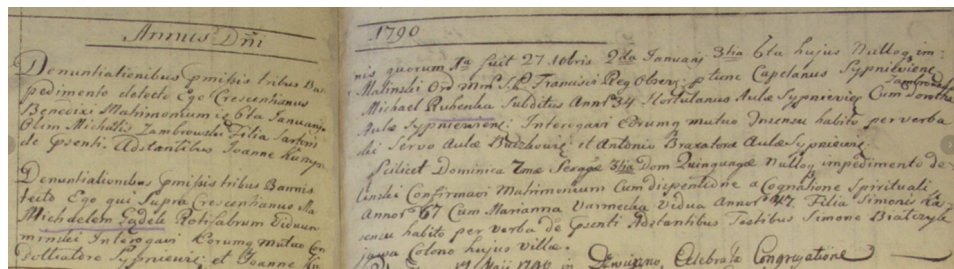 Annus Dñi
Denuntiationibus pmissis tribus Ban
pedimento detecto Ego Crescentianus
Benedixi Matrimonium 6ta Januarij
Olim Michaelis Zambrowski Filia Sartoris
de psenti. Adstantibus Joanne
Denuntiationibus pmissis tribus Bannis
tecto Ego qui Supra Crescentianus Ma
Michaelem Viduum
minski Interogavi Eorumq mutuo Con
Doliatore Sypniewie et Joanne
1790
nis quorum 1a fuit 27 10bris 2da Januarij 3tia 6ta hujus Nulloq im-
Malinski Ord Min S. P. Francisci Reg Obser: ptunc Capelanus Sypnieviene
Michael Rubenka Subditus Annor 34 Hortulanus Aulæ Sypnieviej Cum Dorothea
Zambrowska
Aulæ Sypniewiene: Interogavi Eorumq mutuo Consensu habito per verba
ski Servo Aulæ et Antonio Braxatore Aulæ Sypniewie
Scilicet Dominica 2mæ Sexagæ 3tia Dom Quinquagæ Nulloq impedimento de-
linski Confirmavi Matrimonium Cum dispentione a Cognatione Spirituali
Annor 67 Cum Marianna Warmecka Vedua Annor 47. Filia Simonis Ka-
sensu habito per verba de psenti Adstantibus Testibus Simone Białczyk
Colono hujus villæ.
Maij 1790 in Celebrata Congregatione